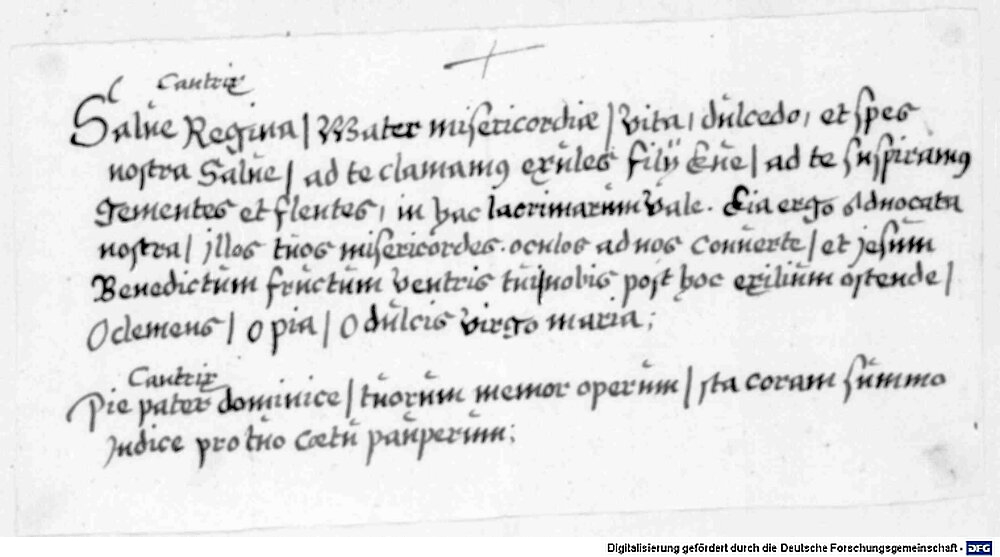 Cantrix
Salve Regina | Mater misericordiæ | Vita, dulcedo, et spes
nostra Salve | ad te clamamus exules filij Eve | ad te suspiramus
gementes et flentes, in hac lacrimarum vale. Eia ergo Advocata
nostra | jllos tuos misericordes. oculos ad nos converte | et jesum
Benedictum fructum ventris tui | nobis post hoc exilium ostende |
O clemens | o pia | O dulcis virgo maria;
Cantrix
Pie pater dominice | tuorum memor operum | sta coram summo
Judice pro tuo cœtu pauperum;
Digitalisierung gefördert durch die Deutsche Forschungsgemeinschaft - DFG